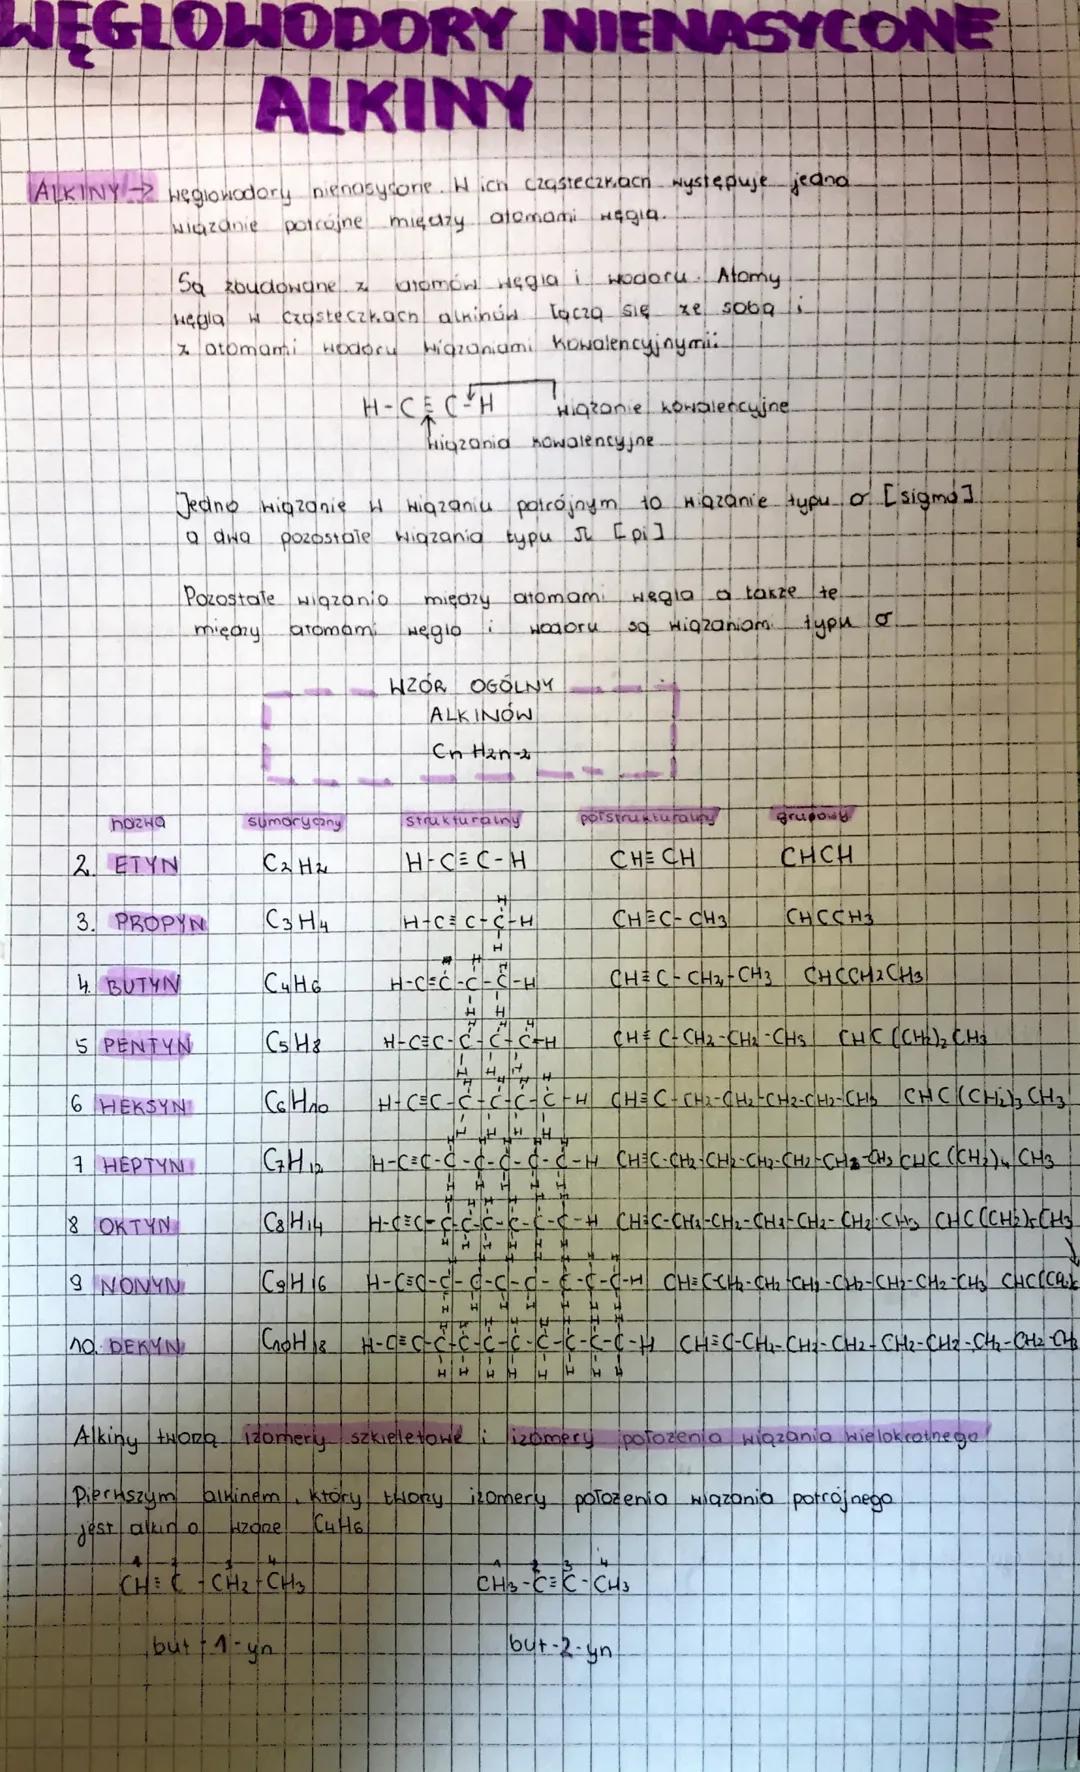 WĘGLOWODORY NIENASYCONE
ALKINY
ALKINY → węglowodory nienasycone. W ich cząsteczkach występuje jedno
wiązanie potrójne między atomami węgla.
Są zbudowane z atomów węgla i wodoru. Atomy
węgla w cząsteczkach alkinów łączą się ze sobą i
z atomami wodoru wiązaniami kowalencyjnymi:
H-C≡C-H wiązanie kowalencyjne
wiązania kowalencyjne
Jedno wiązanie w wiązaniu potrójnym to wiązanie typu σ [sigma]
a dwa pozostałe wiązania typu π [pi]
Pozostałe wiązania między atomami węgla a także te
między atomami węgla i wodoru są wiązaniami typu σ
WZÓR OGÓLNY
ALKINÓW
CnH2n-2
nazwa sumaryczny strukturalny półstrukturalny grupowy
2. ETYN C2H2 H-C≡C-H CH≡CH CHCH
3. PROPYN C3H4 H-C≡C-C-H CH≡C-CH3 CHCCH3
4. BUTYN C4H6 H-C≡C-C-C-H CH≡C-CH2-CH3 CHCCH2CH3
5 PENTYN C5H8 H-C≡C-C-C-C-H CH≡C-CH2-CH2-CH3 CHC(CH2)2CH3
6 HEKSYN C6H10 H-C≡C-C-C-C-C-H CH≡C-CH2-CH2-CH2-CH3 CHC(CH2)3CH3
7 HEPTYN C7H12 H-C≡C-C-C-C-C-C-H CH≡C-CH2-CH2-CH2-CH2-CH3 CHC(CH2)4CH3
8 OKTYN C8H14 H-C≡C-C-C-C-C-C-C-H CH≡C-CH2-CH2-CH2-CH2-CH2-CH3 CHC(CH2)5CH3
9 NONYN C9H16 H-C≡C-C-C-C-C-C-C-C-H CH≡C-CH2-CH2-CH2-CH2-CH2-CH2-CH3
10. DEKYN C10H18 H-C≡C-C-C-C-C-C-C-C-C-H CH≡C-CH2-CH2-CH2-CH2-CH2-CH2-CH2-CH3
Alkiny tworzą izomery szkieletowe i izomery położenia wiązania wielokrotnego
Pierwszym alkinem, który tworzy izomery położenia wiązania potrójnego
jest alkin o wzorze C4H6
1 2 3 4 1 2 3 4
CH≡C-CH2-CH3 CH3-C≡C-CH3
but-1-yn but-2-yn